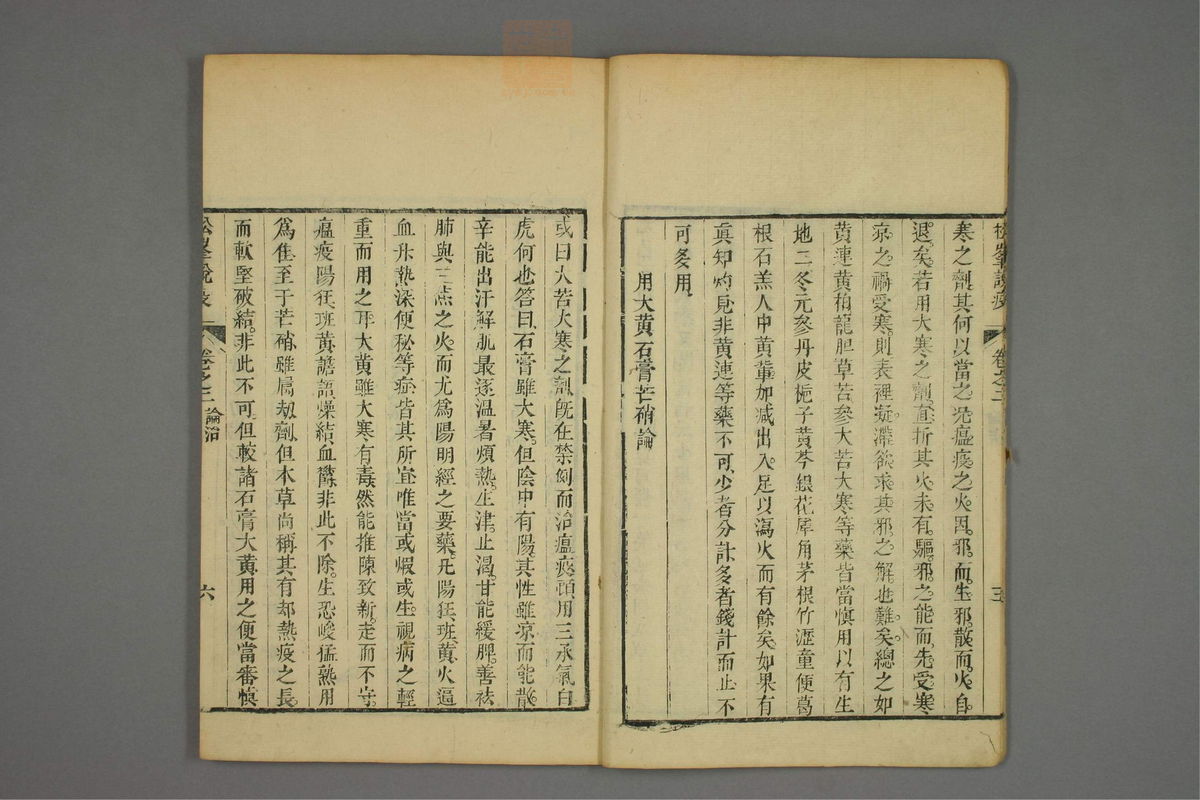 松峯說疫
卷之二
五
寒之劑其何以當之况瘟疫之火因邪而生邪散而火自
退矣若用大寒之劑直折其火未有驅邪之能而先受寒
凉之禍受寒則表裡凝滯欲求其邪之解也難矣總之如
黃連黃柏龍胆草苦參大苦大寒等藥皆當慎用以有生
地二冬元參丹皮梔子黃芩銀花犀角茅根竹瀝童便葛
根石羔人中黃軰加减出入足以瀉火而有餘矣如果有
眞知灼見非黃連等藥不可少者分計多者錢計而止不
可多用
用大黃石膏芒硝論
或曰大苦大寒之劑旣在禁例而治瘟疫頭用三承氣白
虎何也答曰石膏雖大寒但陰中有陽其性雖凉而能散
辛能出汗解肌最逐溫暑煩熱生津止渴甘能緩脾善祛
肺與三焦之火而尤爲陽明經之要藥凡陽狂班黃火逼
血升熱深便秘等症皆其所宜唯當或煆或生視病之輕
重而用之耳大黃雖大寒有毒然能推陳致新走而不守
瘟疫陽狂班黃譫語燥結血鬱非此不除生恐峻猛熟用
爲隹至于芒硝雖屬劫劑但本草尚稱其有却熱疫之長
而軟堅破結非此不可但較諸石膏大黃用之便當審慎
松峯說疫
卷之二
論治
六